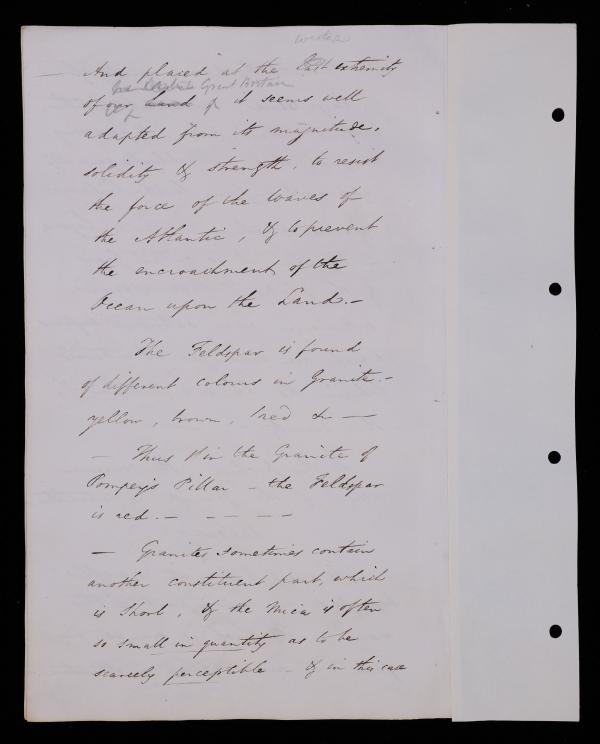 western
And placed at the last extremity
Great Britain
of our Land it seems well
adapted from its magnitude,
solidity & strength, to resist
the force of the waves of
the Atlantic, & to prevent
the encroachment of the
Ocean upon the Land. —
The Feldspar is found
of different colours in Granite. —
yellow, brown, red &c —
— Thus in the Granite of
Pompey's Pillar — the Feldspar
is red. — — — — —
— Granites sometimes contain
another constituent part, which
is Shorl, & the Mica is often
so small in quantity as to be
scarcely perceptible — & in this case